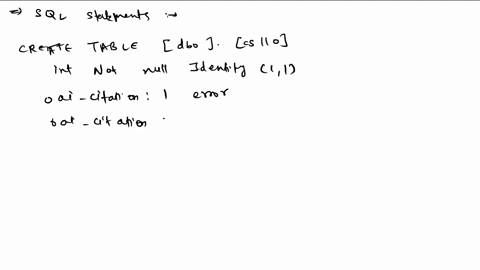 ⇒ SQL statements :→
CREATE TABLE [dbo]. [cs110]
int Not null Identity (1,1)
oai-citation: 1 error
oai-citation :